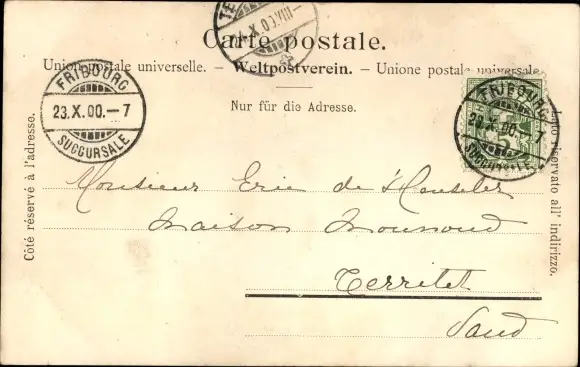 Carte postale.
Union postale universelle. – Weltpostverein. – Unione postale universale
Nur für die Adresse.
Côté réservé à l'adresse.
Lato riservato all' indirizzo.
FRIBOURG
23.X.00.–7
SUCCURSALE
FRIBOURG
23.X.00.–7
SUCCURSALE
Monsieur Eric de
Maison Monnoud
Territet
Vaud